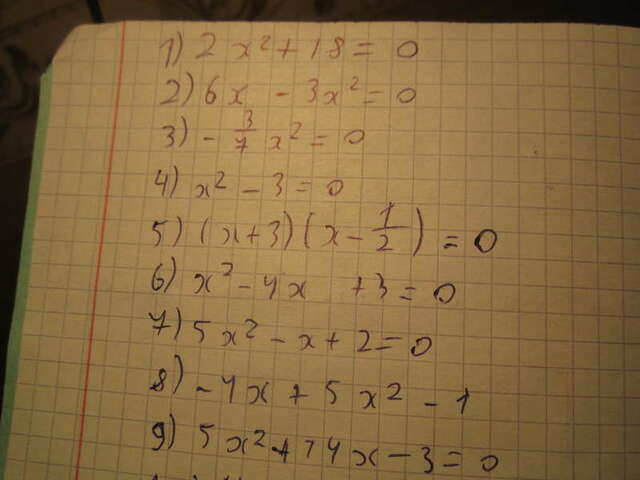 1) 2x² + 18 = 0
2) 6x - 3x² = 0
3) - 3/7 x² = 0
4) x² - 3 = 0
5) (x+3)(x - 1/2) = 0
6) x² - 4x + 3 = 0
7) 5x² - x + 2 = 0
8) -4x + 5x² - 1
9) 5x² + 74x - 3 = 0